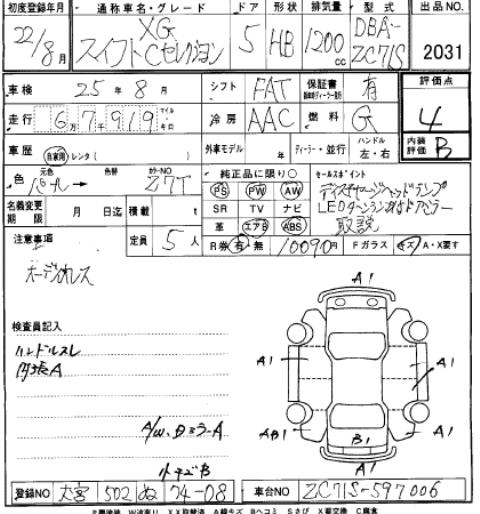 初度登録年月 通称車名・グレード ドア 形状 排気量 型式 出品NO.
22/8月 XG スイフト Cセレクション 5 HB 1200cc DBA-ZC71S 2031
車検 25年 8月 シフト FAT 保証書 有 評価点 4
走行 6万7千919 マイル キロ 冷房 AAC 燃料 G 内装評価 B
車歴 自家用 レンタ ( ) 外車モデル 年 ディーラー・並行 ハンドル 左・右
色 元色 パール → 色替 カラーNO Z7T 純正品に限り○ セールスポイント
PS PW AW ディスチャージヘッドランプ
名義変更期限 月 日迄 積載 t SR TV ナビ LEDターンランプ付ドアミラー
革 エアB ABS 取説
注意事項 定員 5人 R券 有 無 10090円 Fガラス キズ A・X要す
オーディオレス
A1
検査員記入
ハンドルスレ
内張A
A1 A1
A/W、DミラーA
AB1 B1 A1
小キズB
A1
登録NO 大宮 502 ぬ 74-08 車台NO ZC71S-597006